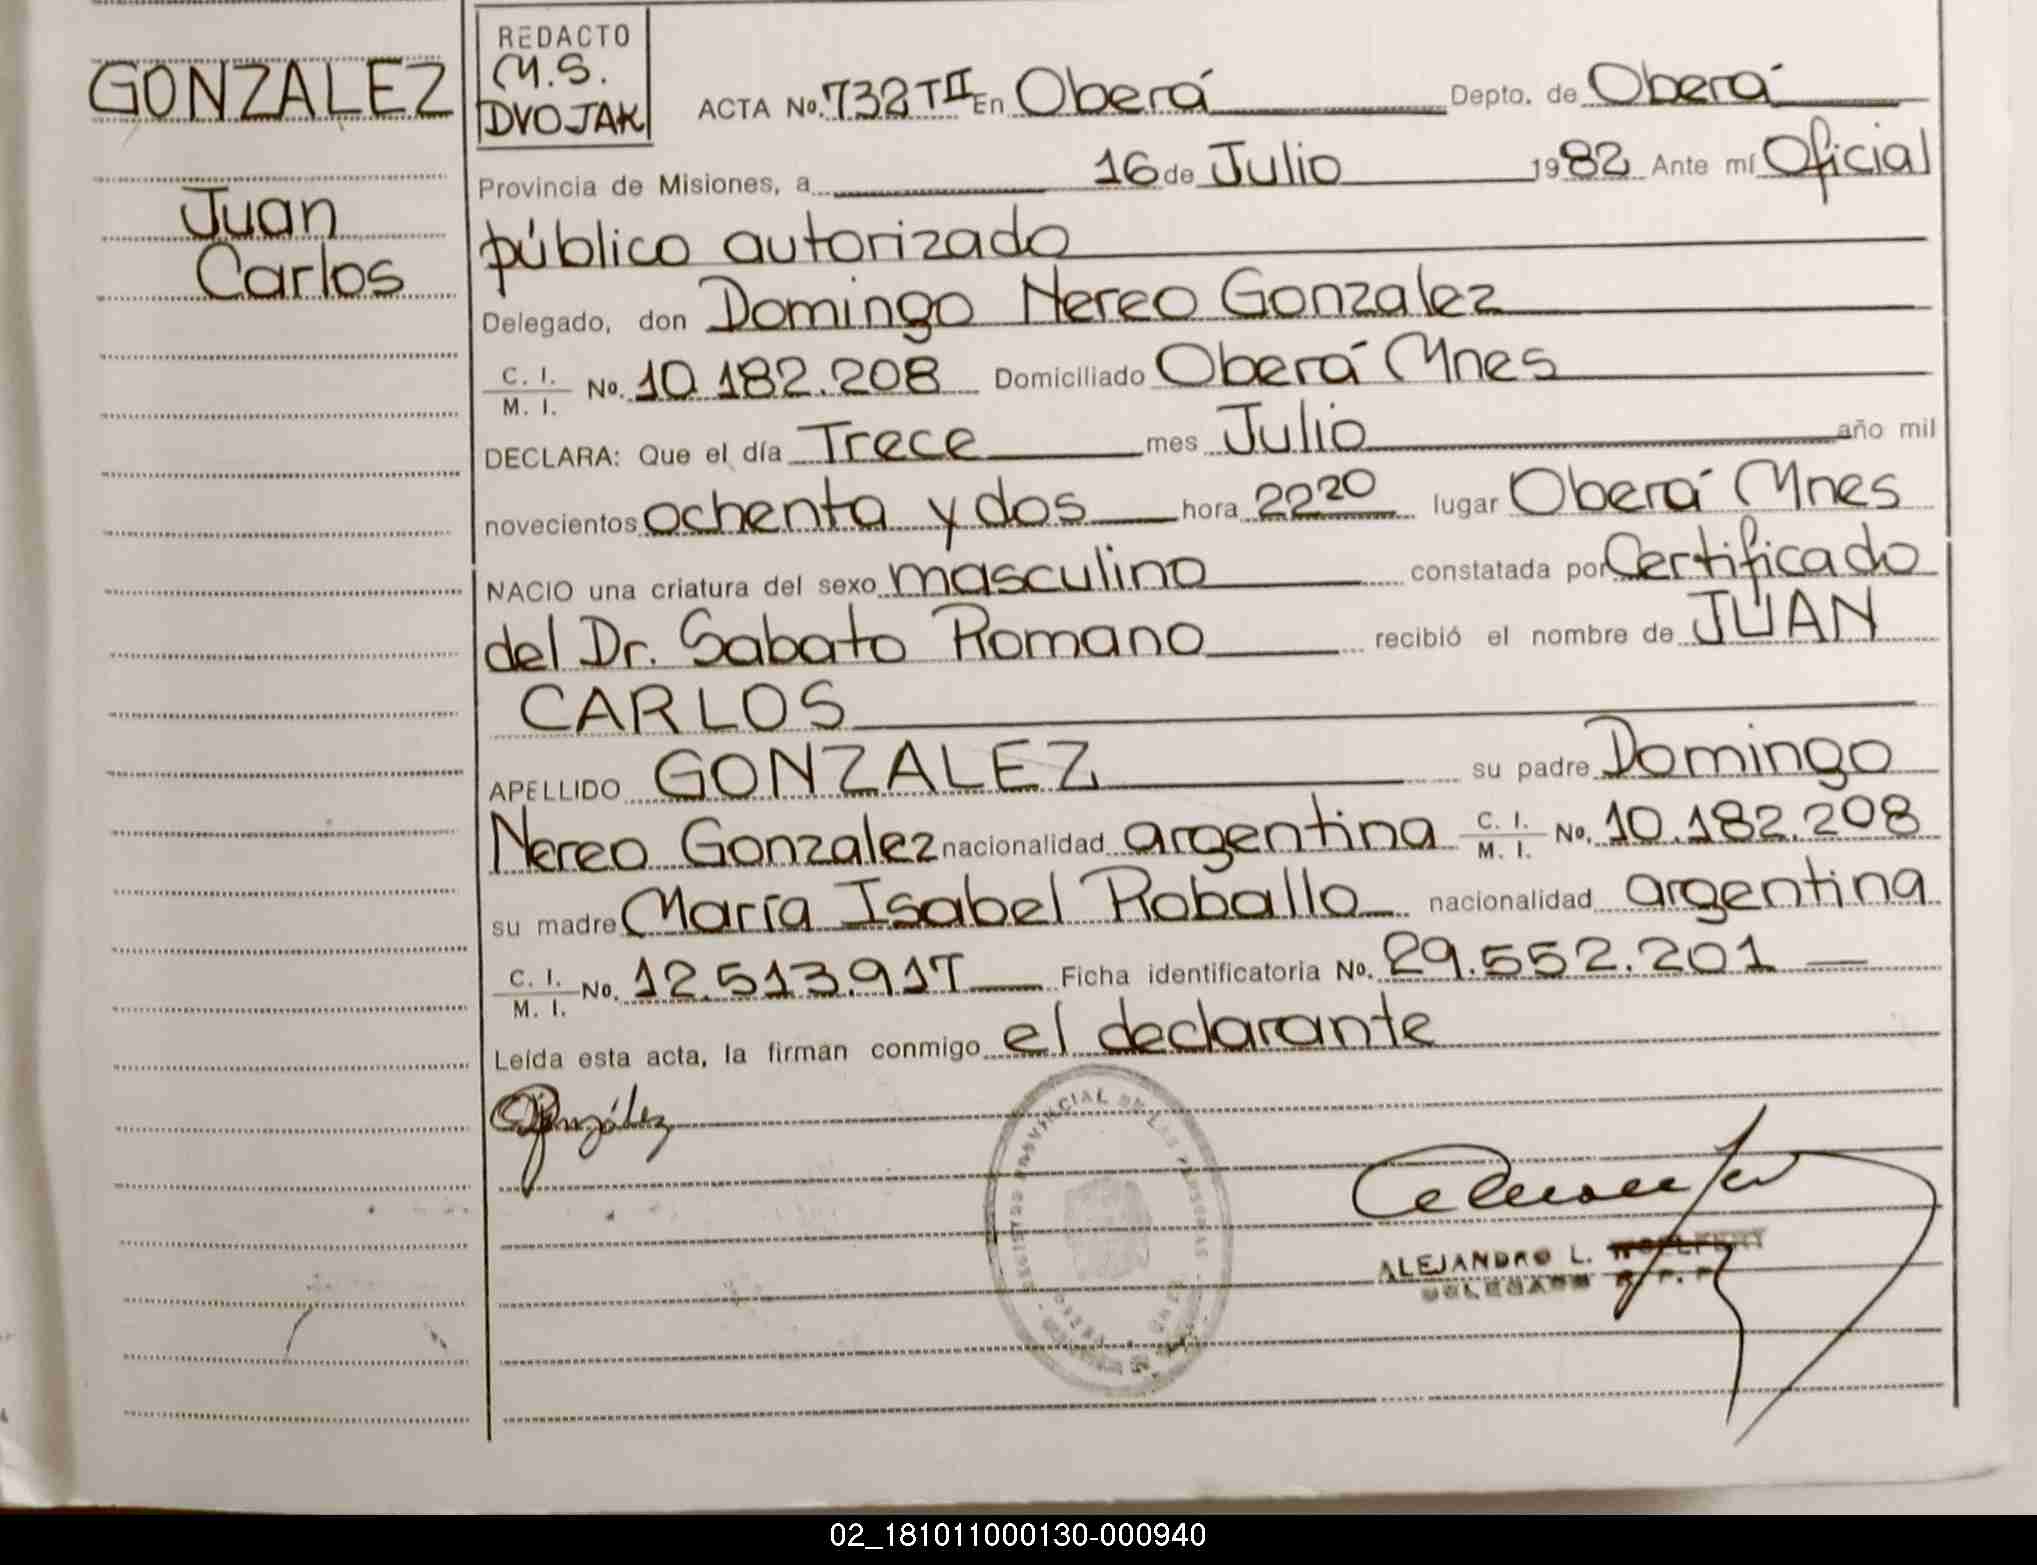 GONZALEZ
Juan
Carlos
REDACTO
M.S.
DVOJAK
ACTA No. 732 TII En Oberá Depto. de Oberá
Provincia de Misiones, a 16 de Julio 1982 Ante mí Oficial
público autorizado
Delegado, don Domingo Nereo Gonzalez
C. I. / M. I. No. 10.182.208 Domiciliado Oberá Mnes
DECLARA: Que el día Trece mes Julio año mil
novecientos ochenta y dos hora 22 20 lugar Oberá Mnes
NACIO una criatura del sexo masculino constatada por Certificado
del Dr. Sabato Romano recibió el nombre de JUAN
CARLOS
APELLIDO GONZALEZ su padre Domingo
Nereo Gonzalez nacionalidad argentina C. I. / M. I. No. 10.182.208
su madre María Isabel Roballo nacionalidad argentina
C. I. / M. I. No. 12.513.917 Ficha identificatoria No. 29.552.201
Leída esta acta, la firman conmigo el declarante
González
PROVINCIAL DE LAS PERSONAS
ALEJANDRO L.
DELEGADO R. P. P.
02_181011000130-000940